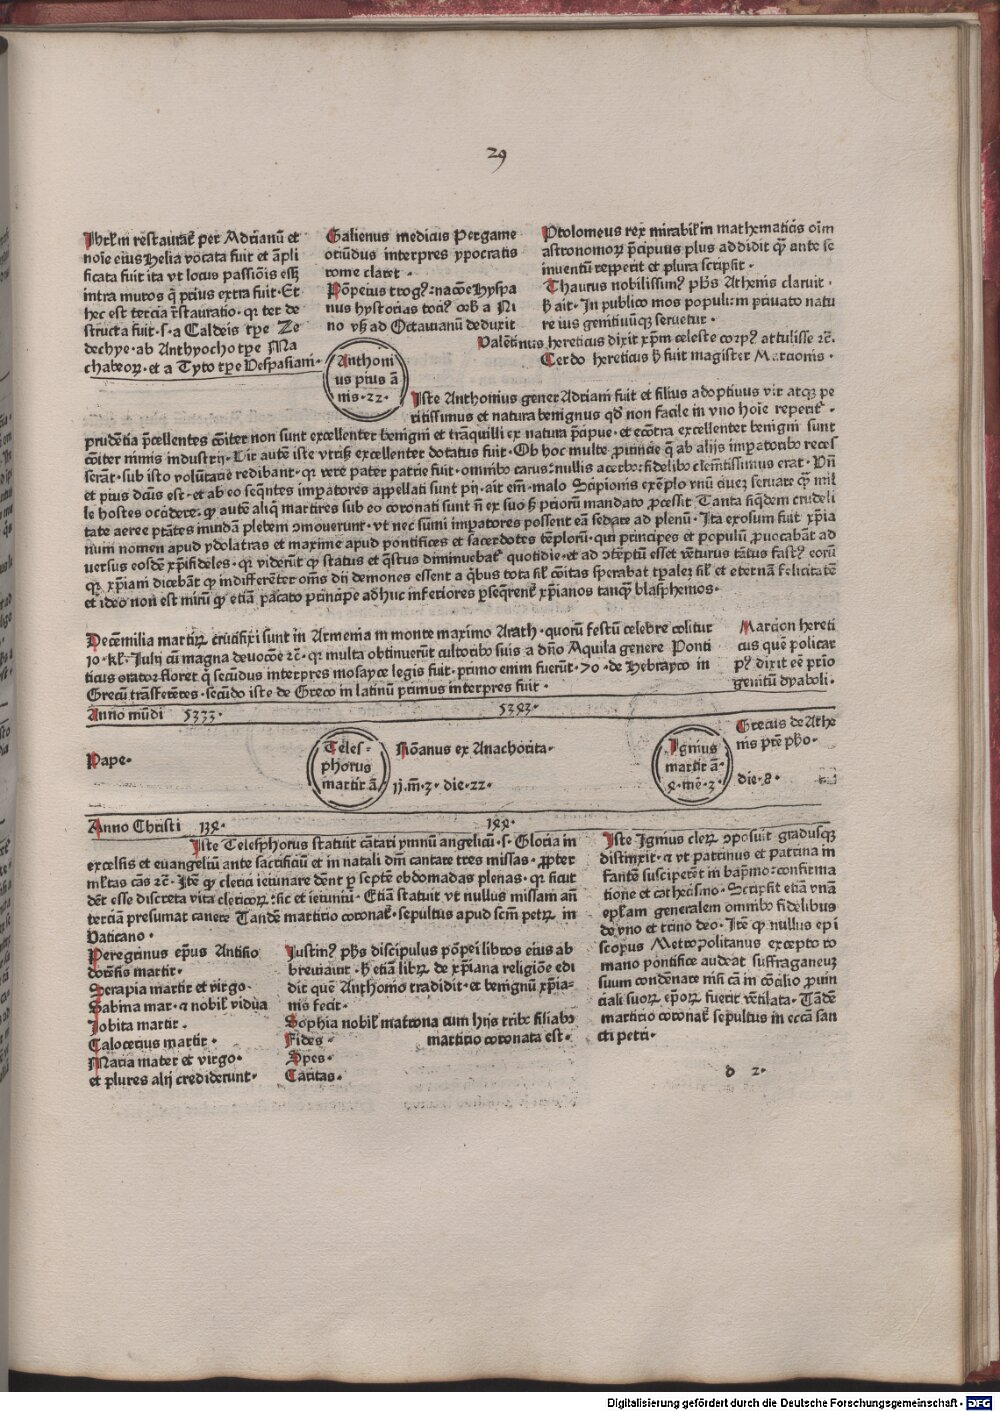 29
Jhrłm restauraꝉ per Adrianū et
noīe eius Helia vocata fuit et āpli
ficata fuit ita vt locus passiōis esſꝫ
intra muros q̄ prius extra fuit· Et
hec est tercia r̄stauratio· qꝛ ter de
structa fuit· s· a Caldeis tp̄e Ze
dechye· ab Anthyocho tp̄e Ma
chabeoꝝ· et a Tyto tp̄e Vespasiani·
Galienus medicus Pergame
oriūdus interpres ypocratis
rome claret ·
Pōpeius trogꝰ: nacōe Hyspa
nus hystorias
no vsꝫ ad Octauianū deduxit
Ptolomeus rex mirabiłm mathematicis oīm
astronomoꝝ p̄cipuus plus addidit qꝫ ante se
inuentū repperit et plura scripsit ·
Thaurus nobilissimꝰ pħs Athenis claruit ·
ħ ait· In publico mos populi: in priuato natu
re ius genitiuūqꝫ seruetur ·
Valētinus hereticus dixit xp̄m celeste corpꝰ attulisse ⁊c̄·
Cerdo hereticus ħ fuit magister Marcionis ·
Anthoni
us pius ā
nis · 22 ·
Iste Anthonius gener Adriani fuit et filius adoptiuus vir atqꝫ pe
ritissimus et natura benignus qd̄ non facile in vno hoīe reperitᷣ ·
prudētia p̄cellentes cōiter non sunt excellenter benigni et trāquilli ex natura p̄cipue· et ecōtra excellenter benigni sunt
cōiter nimis industrij· Vir autē iste vtrisꝫ excellenter dotatus fuit· Ob hoc multe ꝓuincie q̄ ab alijs imꝑatoribꝰ reces
serāt· sub isto volūtarie redibant· qꝛ vere pater patrie fuit· omnibꝰ carus: nullis acerbꝰ: fidelibꝰ clemētissimus erat· Vn̄
et pius dictus est· et ab eo seq̄ntes imꝑatores appellati sunt pij· ait em̄· malo Scipionis exēplo vnū ciueꝫ seruare qꝫ mil
le hostes occidere· qꝫ autē aliq̄ martires sub eo coronati sunt n̄ ex suo sꝫ priorū mandato ꝓcessit· Tanta siq̄dem crudeli
tate aeree ptātes mundā plebem ꝯmouerunt· vt nec sum̄i imꝑatores possent eā sedare ad plenū· Ita exosum fuit xp̄ia
num nomen apud ydolatras et maxime apud pontifices et sacerdotes tēplorū· qui principes et populū ꝓuocabāt ad
uersus eosdē xp̄ifideles· qꝛ viderūt qꝫ status et q̄stus diminuebatᷣ quotidie· et ad ꝯtēptū esset vēturus tātus fastꝰ eorū
qꝛ xp̄iani dicebāt qꝫ indifferēter om̄s dij demones essent a q̄bus tota cōitas sperabat tp̄aleꝫ et eternā felicitatē
et ideo non est mirū qꝫ etiā pacato principe adhuc inferiores ꝑseq̄renᷣ xp̄ianos tanqꝫ blasphemos·
Decēmilia martiꝝ crucifixi sunt in Armenia in monte maximo Arath· quorū festū celebre colitur
10 · kł· Julij cū magna deuocōe ⁊c̄· qꝛ multa obtinuerūt cultoribꝰ suis a dn̄o Aquila genere Ponti
ticus orator floret q̄ secūdus interpres mosayce legis fuit· primo enim fuerūt · 70 · de Hebrayco in
Grecū trāsferētes· secūdo iste de Greco in latinū primus interpres fuit ·
Marcion hereti
cus quē policar
pꝰ dixit eē prio
genitū dyaboli·
Anno mūdi 5333· 5343·
Pape·
Teles-
phorus
martir ā
Rōanus ex Anachorita·
11· m̄· 3 · die· 22·
Ignius
martir ā·
4· mē· 3·
Grecus de Athe
nis pr̄e pħo·
die· 8·
Anno Christi 134· 144·
Iste Telesphorus statuit cātari ymnū angelicū· s· Gloria in
excelsis et euangeliū ante sacrificiū et in natali dn̄i cantare tres missas· ꝓpter
młtas cās ⁊c̄· Itē qꝫ clerici ieiunare dēnt ꝑ septē ebdomadas plenas· qꝛ sicut
dēt esse discreta vita clericoꝝ: sic et ieiuniū· Etiā statuit vt nullus missam an̄
terciā presumat canere Tandē martirio coronatᷣ· sepultus apud scm̄ petꝝ in
Vaticano ·
Iste Ignius cleꝝ ꝯposuit gradusqꝫ
distinxit· ⁊ vt patrinus et patrina in
fantē susciperēt in bap̄mo: confirma
tione et cathecismo· Scripsit etiā vnā
ep̄łam generalem omnibꝰ fidelibus
de vno et trino deo· Itē qꝫ nullus epi
scopus Metropolitanus excepto ro
mano pontifice audeat suffraganeuꝫ
suum condēnare nisi cā in cōcilio ꝓuin
ciali suoꝝ ep̄oꝝ fuerit vētilata· Tādē
martirio coronatᷣ sepultus in ecc̄a san
cti petri·
Peregrinus ep̄us Antisio
dorēsis martir·
Serapia martir et virgo·
Sabina mar· ⁊ nobił vidua
Jobita martir ·
Calocerius martir ·
Maria mater et virgo·
et plures alij crediderunt·
Justinꝰ pħs discipulus pōpei libros eius ab
breuiauit· ħ etiā libꝝ de xp̄iana religiōe edi
dit quē Anthonio tradidit· et benignū xp̄ia-
nis fecit·
Sophia nobił matrona cum hijs tribꝰ filiabꝰ
Fides · martirio coronata est·
Spes·
Caritas·
d 2·
Digitalisierung gefördert durch die Deutsche Forschungsgemeinschaft - DFG